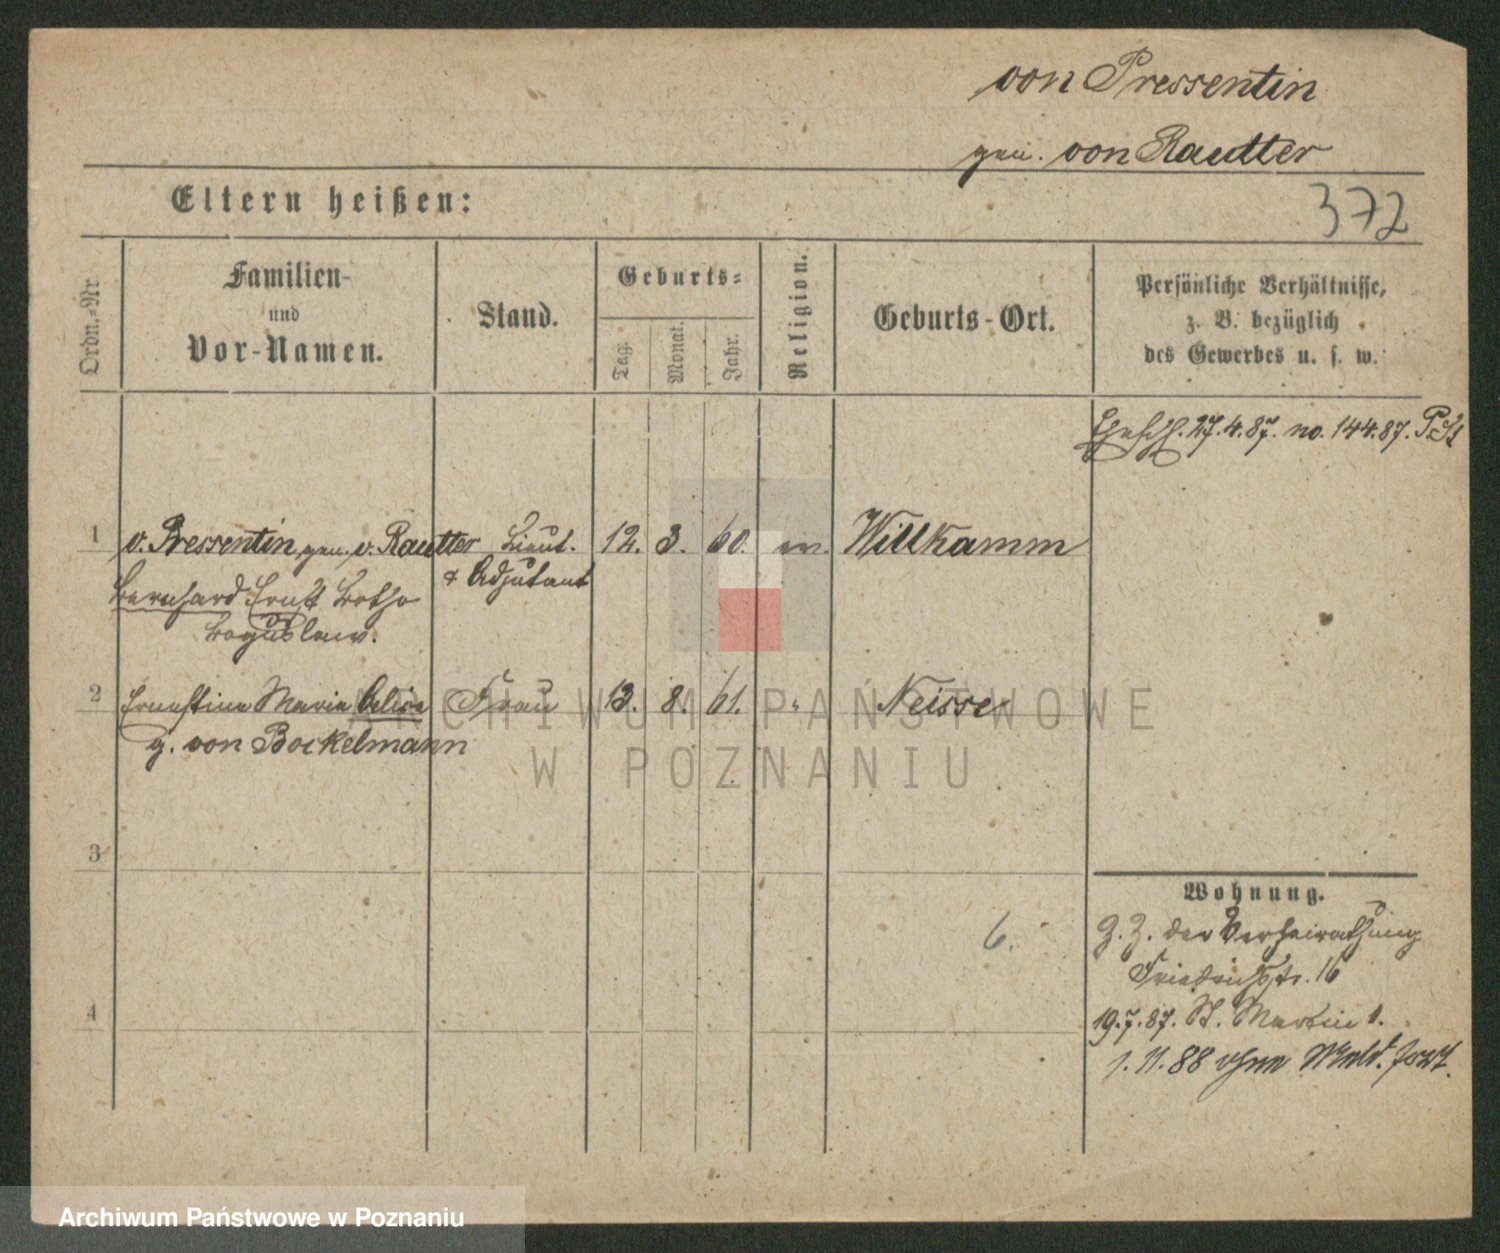 von Pressentin
gen. von Rautter
Eltern heißen:
372
Ordn.-Nr
Familien-
und
Vor-Namen.
Stand.
Geburts-
Tag.
Monat.
Jahr.
Religion.
Geburts-Ort.
Persönliche Verhältnisse,
z. B. bezüglich
des Gewerbes u. s. w.
Eheschl. 27.4.87. no. 144.87.
1 v. Pressentin gen. v. Rautter Lieut. 12. 3. 60. ev. Willkamm
& Adjutant
Bernhard Ernst Botho
Boguslaw.
2 Ernestine Marie Alice Frau 13. 8. 61. " Neisse
g. von Bockelmann
3
4
6.
Wohnung.
Z. Z. der Verheirathung
Friedrichstr. 16
19.7.87. St. Martin 1.
1.11.88 ohne Meld. fort.
ARCHIWUM PAŃSTWOWE
W POZNANIU
Archiwum Państwowe w Poznaniu